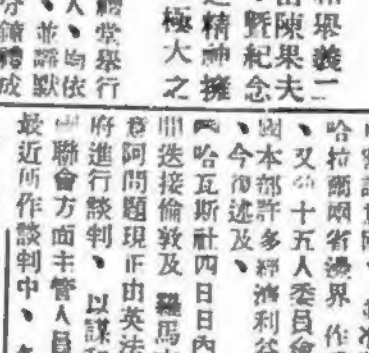 舉義二
陳果夫
、暨紀念
之精神擁
極大之
禮堂舉行
人、均依
、並靜默
分鐘禮成
哈拉爾兩省邊界 作
、又 十五人委員會
國本部許多經濟利益
、今復述及、
哈瓦斯社四日日內
迭接倫敦及羅馬
意阿問題現正由英法
府進行談判、以謀和
聯會方面主管人員
最近所作談判中、